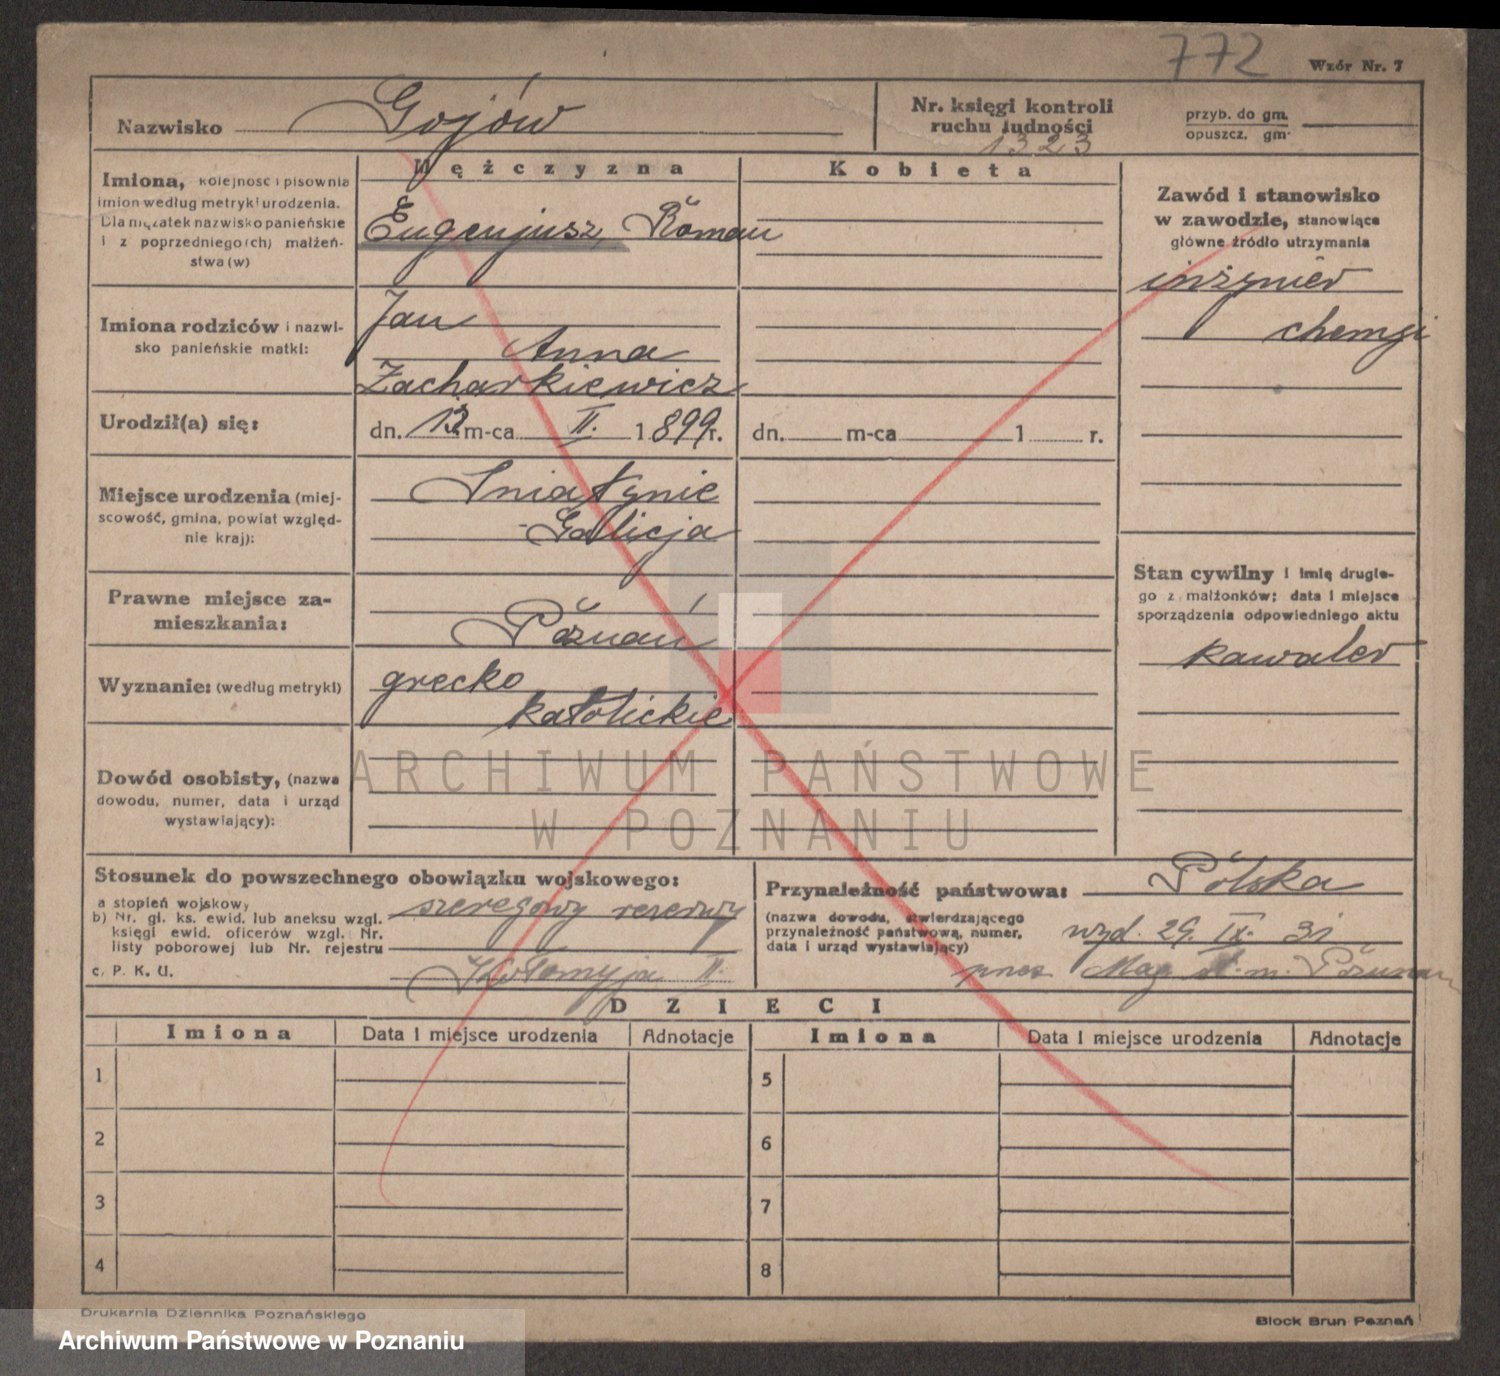 772
Wzór Nr. 7
Nazwisko Gojów
Nr. księgi kontroli
ruchu ludności
1323
przyb. do gm.
opuszcz. gm.
Mężczyzna
Kobieta
Imiona, kolejność i pisownia
imion według metryki urodzenia.
Dla mężatek nazwisko panieńskie
i z poprzedniego (ch) małżeń-
stwa (w)
Eugenjusz, Roman
Zawód i stanowisko
w zawodzie, stanowiące
główne źródło utrzymania
inżynier
chemji
Imiona rodziców i nazwi-
sko panieńskie matki:
Jan
Anna
Zacharkiewicz
Urodził(a) się:
dn. 13 m-ca II. 1899r.
dn. m-ca 1 r.
Miejsce urodzenia (miej-
scowość, gmina, powiat względ-
nie kraj):
Sniatynie
-Galicja
Prawne miejsce za-
mieszkania:
Poznań
Stan cywilny i imię drugie-
go z małżonków; data i miejsce
sporządzenia odpowiedniego aktu
kawaler
Wyznanie: (według metryki)
grecko
katolickie
Dowód osobisty, (nazwa
dowodu, numer, data i urząd
wystawiający):
ARCHIWUM PAŃSTWOWE
W POZNANIU
Stosunek do powszechnego obowiązku wojskowego:
a stopień wojskowy
b) Nr. gł. ks. ewid. lub aneksu wzgl.
księgi ewid. oficerów wzgl. Nr.
listy poborowej lub Nr. rejestru
c. P. K. U.
szeregowy rezerwy
Kołomyja II.
Przynależność państwowa: Polska
(nazwa dowodu, stwierdzającego
przynależność państwową, numer,
data i urząd wystawiający)
wyd. 29. IX. 31
przez Mag. st. m. Poznan
DZIECI
Imiona Data i miejsce urodzenia Adnotacje
Imiona Data i miejsce urodzenia Adnotacje
1
5
2
6
3
7
4
8
Drukarnia Dziennika Poznańskiego
Block Brun Poznań
Archiwum Państwowe w Poznaniu